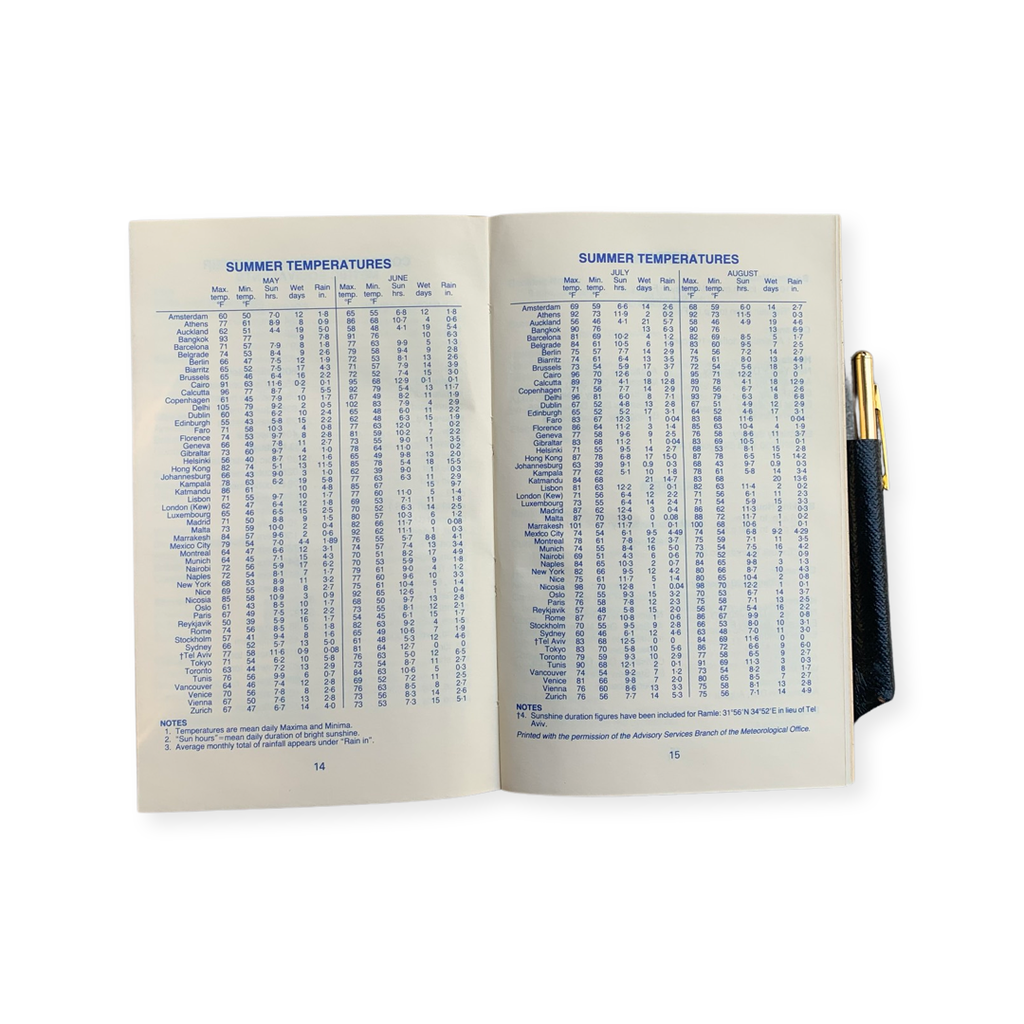 SUMMER TEMPERATURES
MAY JUNE
Max. temp. °F Min. temp. °F Sun hrs. Wet days Rain in. Max. temp. °F Min. temp. °F Sun hrs. Wet days Rain in.
Amsterdam 60 50 7·0 12 1·8 65 55 6·8 12 1·8
Athens 77 61 8·9 8 0·9 86 68 10·7 4 0·6
Auckland 62 51 4·4 19 5·0 58 48 4·1 19 5·4
Bangkok 93 77 9 7·8 91 76 10 6·3
Barcelona 71 57 7·9 8 1·8 77 63 9·9 5 1·3
Belgrade 74 53 8·4 9 2·6 79 58 9·4 9 2·8
Berlin 66 47 7·5 12 1·9 72 53 8·1 13 2·6
Biarritz 65 52 7·5 17 4·3 71 57 7·9 14 3·9
Brussels 65 46 6·4 16 2·2 72 52 7·4 15 3·0
Cairo 91 63 11·6 0·2 0·1 95 68 12·9 0·1 0·1
Calcutta 96 77 8·7 7 5·5 92 79 5·4 13 11·7
Copenhagen 61 45 7·9 10 1·7 67 49 8·2 11 1·9
Delhi 105 79 9·2 2 0·5 102 83 7·9 4 2·9
Dublin 60 43 6·2 10 2·4 65 48 6·0 11 2·2
Edinburgh 55 43 5·8 15 2·2 62 48 6·3 15 1·9
Faro 71 58 10·3 4 0·8 77 63 12·0 1 0·2
Florence 74 53 9·7 8 2·8 81 59 10·2 7 2·2
Geneva 66 49 7·8 11 2·7 73 55 9·0 11 3·5
Gibraltar 73 60 9·7 4 1·0 78 64 11·0 1 0·2
Helsinki 56 40 8·7 12 1·6 65 49 9·8 13 2·0
Hong Kong 82 74 5·1 13 11·5 85 78 5·4 18 15·5
Johannesburg 66 43 9·0 3 1·0 62 39 9·0 1 0·3
Kampala 78 63 6·2 19 5·8 77 63 6·3 11 2·9
Katmandu 86 61 10 4·8 85 67 15 9·7
Lisbon 71 55 9·7 10 1·7 77 60 11·0 5 1·4
London (Kew) 62 47 6·4 12 1·8 69 53 7·1 11 1·8
Luxembourg 65 46 6·5 15 2·5 70 52 6·3 14 2·5
Madrid 71 50 8·8 9 1·5 80 57 10·3 6 1·2
Malta 73 59 10·0 2 0·4 82 66 11·7 0 0·08
Marrakesh 84 57 9·6 2 0·6 92 62 11·1 1 0·3
Mexico City 79 54 7·0 4·4 1·89 76 55 5·7 8·8 4·1
Montreal 64 47 6·6 12 3·1 74 57 7·4 13 3·4
Munich 64 45 7·1 15 4·3 70 51 8·2 17 4·9
Nairobi 72 56 5·9 17 6·2 70 53 5·9 9 1·8
Naples 72 54 8·1 7 1·7 79 61 9·0 4 1·2
New York 68 53 8·9 11 3·2 77 60 9·6 10 3·3
Nice 69 55 8·8 8 2·7 75 61 10·4 5 1·4
Nicosia 85 58 10·9 3 0·9 92 65 12·6 1 0·4
Oslo 61 43 8·5 10 1·7 68 50 9·7 13 2·8
Paris 67 49 7·5 12 2·2 73 55 8·1 12 2·1
Reykjavik 50 39 5·9 16 1·7 54 45 6·1 15 1·7
Rome 74 56 8·5 5 1·8 82 63 9·2 4 1·5
Stockholm 57 41 9·4 8 1·6 65 49 10·6 7 1·9
Sydney 66 52 5·7 13 5·0 61 48 5·3 12 4·6
†Tel Aviv 77 58 11·6 0·9 0·08 81 64 12·7 0 0
Tokyo 71 54 6·2 10 5·8 76 63 5·0 12 6·5
Toronto 63 44 7·2 13 2·9 73 54 8·7 11 2·7
Tunis 76 56 9·9 6 0·7 84 63 10·6 5 0·3
Vancouver 64 46 7·4 12 2·8 69 52 7·2 11 2·5
Venice 70 56 7·8 8 2·6 76 63 8·5 8 2·7
Vienna 67 50 7·6 12 2·8 73 56 8·3 14 2·6
Zurich 67 47 6·7 14 4·0 73 53 7·3 15 5·1
NOTES
1. Temperatures are mean daily Maxima and Minima.
2. "Sun hours"=mean daily duration of bright sunshine.
3. Average monthly total of rainfall appears under "Rain in".
14
SUMMER TEMPERATURES
JULY AUGUST
Max. temp. °F Min. temp. °F Sun hrs. Wet days Rain in. Max. temp. °F Min. temp. °F Sun hrs. Wet days Rain in.
Amsterdam 69 59 6·6 14 2·6 68 59 6·0 14 2·7
Athens 92 73 11·9 2 0·2 92 73 11·5 3 0·3
Auckland 56 46 4·1 21 5·7 58 46 4·9 19 4·6
Bangkok 90 76 13 6·3 90 76 13 6·9
Barcelona 81 69 10·2 4 1·2 82 69 8·5 5 1·7
Belgrade 84 61 10·5 6 1·9 83 60 9·5 7 2·5
Berlin 75 57 7·7 14 2·9 74 56 7·2 14 2·7
Biarritz 74 61 6·4 13 3·5 75 61 8·0 13 4·9
Brussels 73 54 5·9 17 3·7 72 54 5·6 18 3·1
Cairo 96 70 12·6 0 0 95 71 12·2 0 0
Calcutta 89 79 4·1 18 12·8 89 78 4·1 18 12·9
Copenhagen 71 56 7·7 14 2·9 70 56 6·7 14 2·6
Delhi 96 81 6·0 8 7·1 93 79 6·3 8 6·8
Dublin 67 52 4·8 13 2·8 67 51 4·9 12 2·9
Edinburgh 65 52 5·2 17 3·1 64 52 4·6 17 3·1
Faro 83 67 12·3 1 0·04 83 68 11·6 1 0·04
Florence 86 64 11·2 3 1·4 85 63 10·4 4 1·9
Geneva 77 58 9·6 9 2·5 76 58 8·6 11 3·7
Gibraltar 83 68 11·2 1 0·04 83 69 10·5 1 0·1
Helsinki 71 55 9·5 14 2·7 68 53 8·1 15 2·8
Hong Kong 87 78 6·8 17 15·0 87 78 6·5 15 14·2
Johannesburg 63 39 9·1 0·9 0·3 68 43 9·7 0·9 0·3
Kampala 77 62 5·1 10 1·8 78 61 5·8 14 3·4
Katmandu 84 68 21 14·7 83 68 20 13·6
Lisbon 81 63 12·2 2 0·1 82 63 11·4 2 0·2
London (Kew) 71 56 6·4 12 2·2 71 56 6·1 11 2·3
Luxembourg 73 55 6·4 14 2·4 71 54 5·9 15 3·3
Madrid 87 62 12·4 3 0·4 86 62 11·3 2 0·3
Malta 87 70 13·0 0 0·08 88 72 11·7 1 0·2
Marrakesh 101 67 11·7 1 0·1 100 68 10·6 1 0·1
Mexico City 74 54 6·1 9·5 4·49 74 54 6·8 9·2 4·29
Montreal 78 61 7·8 12 3·7 75 59 7·1 11 3·5
Munich 74 55 8·4 16 5·0 73 54 7·5 16 4·2
Nairobi 69 51 4·3 6 0·6 70 52 4·2 7 0·9
Naples 84 65 10·3 2 0·7 84 65 9·8 3 1·3
New York 82 66 9·5 12 4·2 80 66 8·7 10 4·3
Nice 75 61 11·7 5 1·4 80 65 10·4 2 0·8
Nicosia 98 70 12·8 1 0·04 98 70 12·2 1 0·1
Oslo 72 55 9·3 15 3·2 70 53 6·7 14 3·7
Paris 76 58 7·8 12 2·3 75 58 7·1 13 2·5
Reykjavik 57 48 5·8 15 2·0 56 47 5·4 16 2·2
Rome 87 67 10·8 1 0·6 86 67 9·9 2 0·8
Stockholm 70 55 9·5 9 2·8 66 53 8·0 10 3·1
Sydney 60 46 6·1 12 4·6 63 48 7·0 11 3·0
†Tel Aviv 83 68 12·5 0 0 84 69 11·6 0 0
Tokyo 83 70 5·8 10 5·6 86 72 6·6 9 6·0
Toronto 79 59 9·3 10 2·9 77 58 6·5 9 2·7
Tunis 90 68 12·1 2 0·1 91 69 11·3 3 0·3
Vancouver 74 54 9·2 7 1·2 73 54 8·2 8 1·7
Venice 81 66 9·8 7 2·0 80 65 8·5 7 2·7
Vienna 76 60 8·6 13 3·3 75 58 8·1 13 2·8
Zurich 76 56 7·7 14 5·3 75 56 7·1 14 4·9
NOTES
†4. Sunshine duration figures have been included for Ramle: 31°56'N 34°52'E in lieu of Tel
Aviv.
Printed with the permission of the Advisory Services Branch of the Meteorological Office.
15